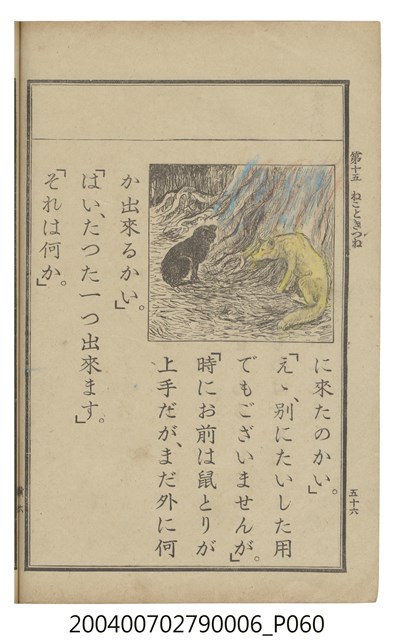 第十五 ねこときつね
五十六
に來たのかい」。
「えゝ、別にたいした用
でもございませんが」。
「時にお前は鼠とりが
上手だが、まだ外に何
か出來るかい」。
「はい、たつた一つ出來ます」。
「それは何か」。
200400702790006_P060